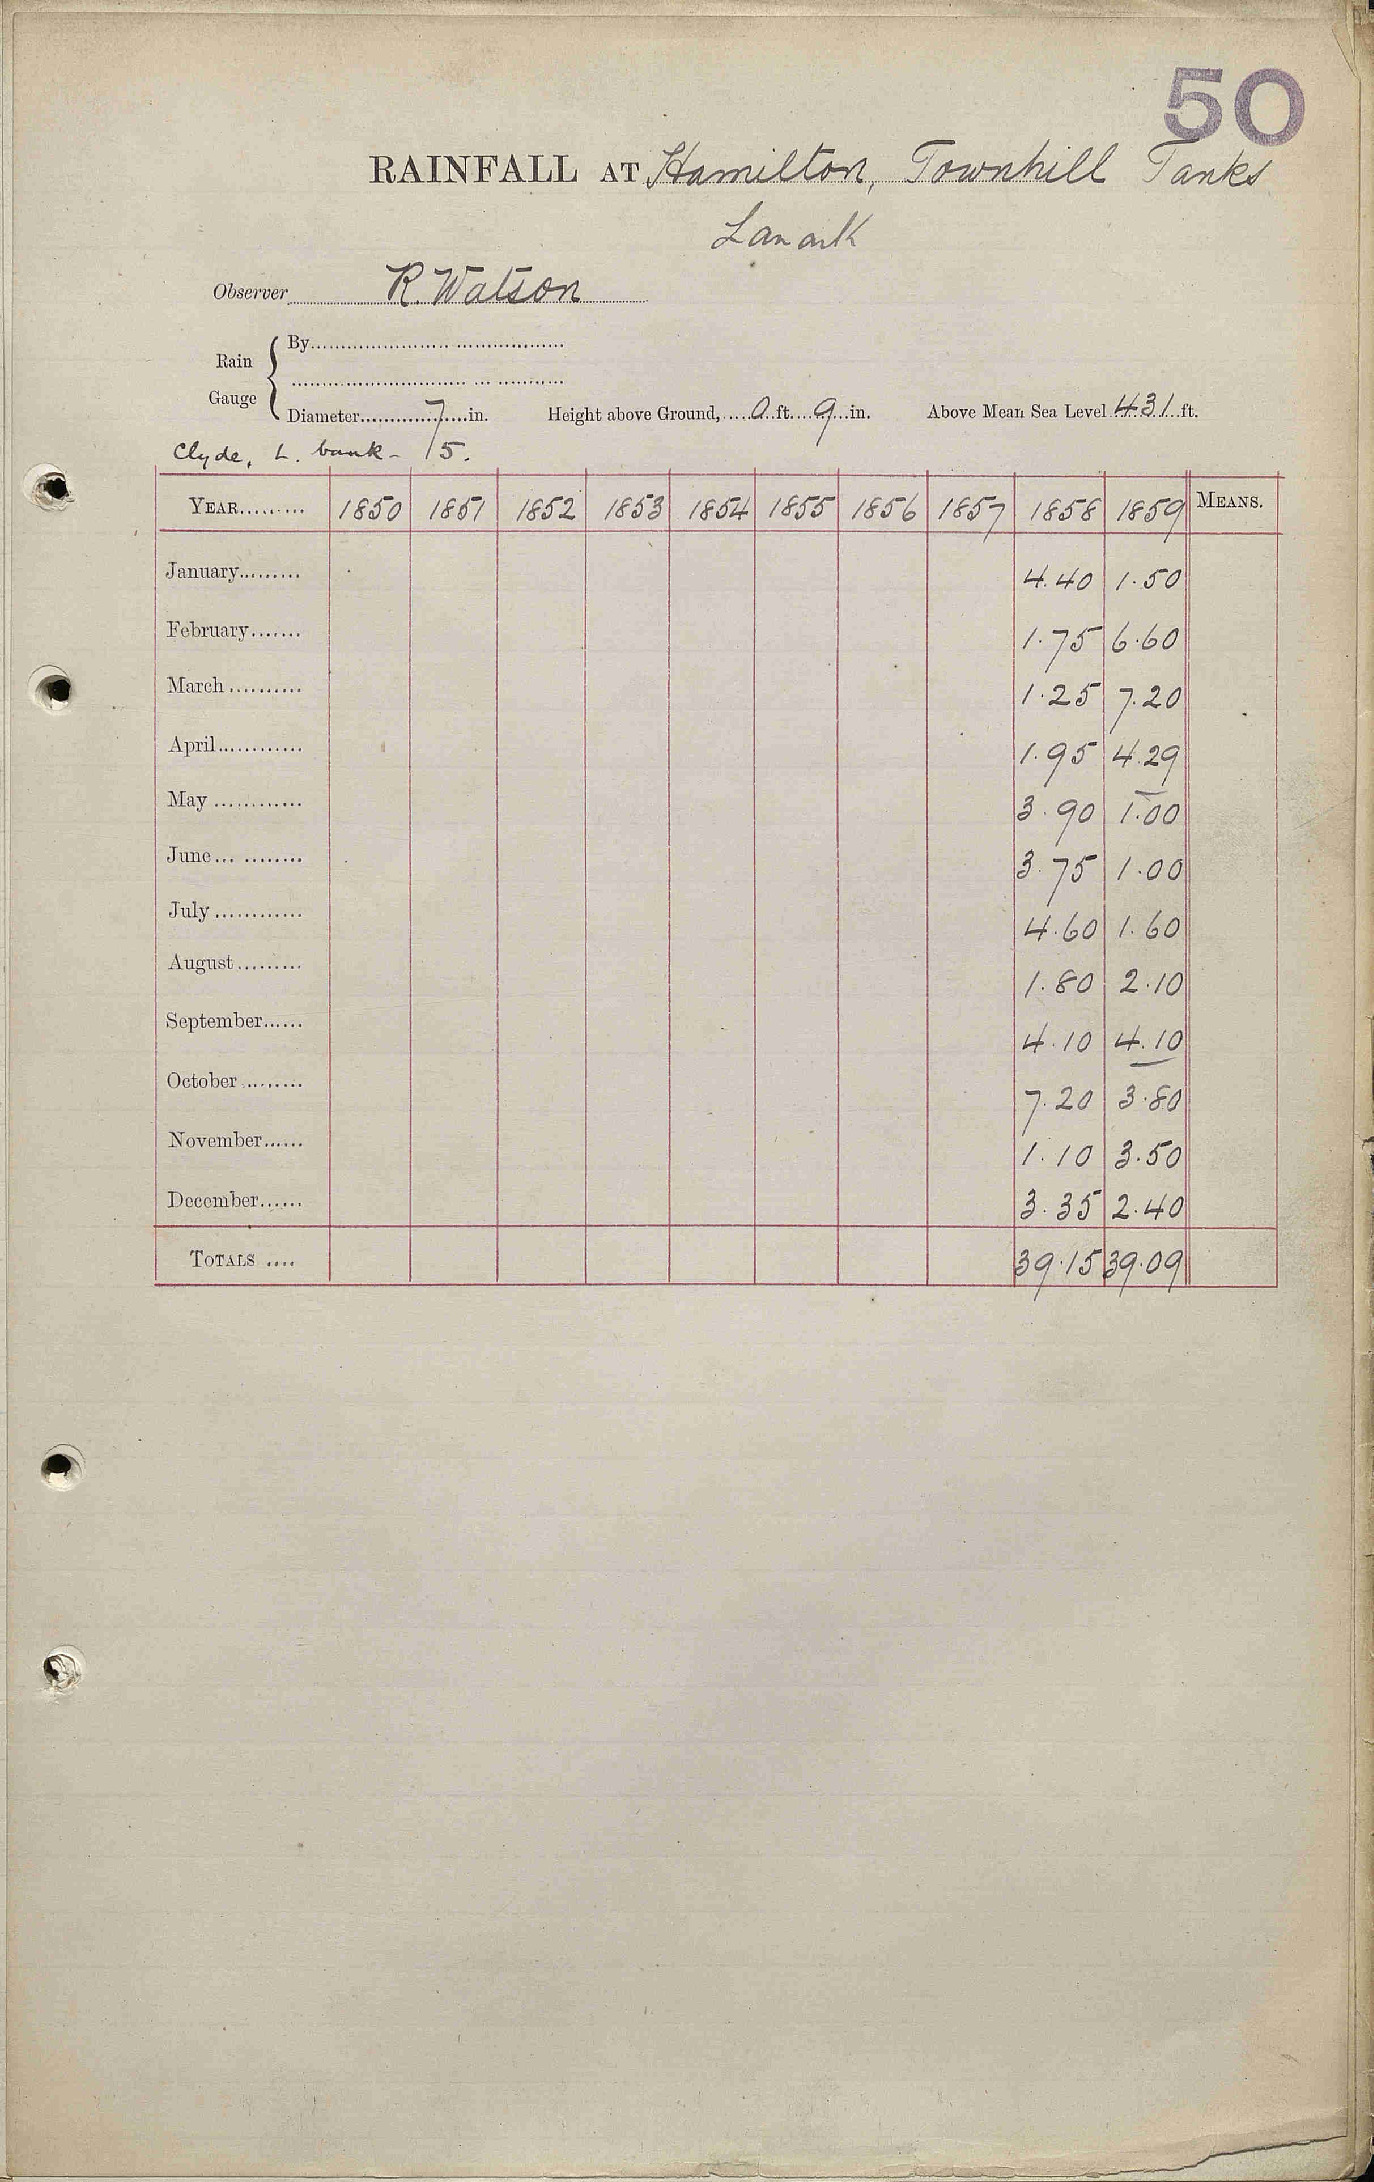 50
RAINFALL AT Hamilton, Townhill Tanks
Lanark
Observer R. Watson
Rain Gauge { By
Diameter 7 in. Height above Ground, 0 ft. 9 in. Above Mean Sea Level 431 ft.
Clyde, L. bank - 15.
YEAR 1850 1851 1852 1853 1854 1855 1856 1857 1858 1859 MEANS.
January 4.40 1.50
February 1.75 6.60
March 1.25 7.20
April 1.95 4.29
May 3.90 1.00
June 3.75 1.00
July 4.60 1.60
August 1.80 2.10
September 4.10 4.10
October 7.20 3.80
November 1.10 3.50
December 3.35 2.40
TOTALS 39.15 39.09